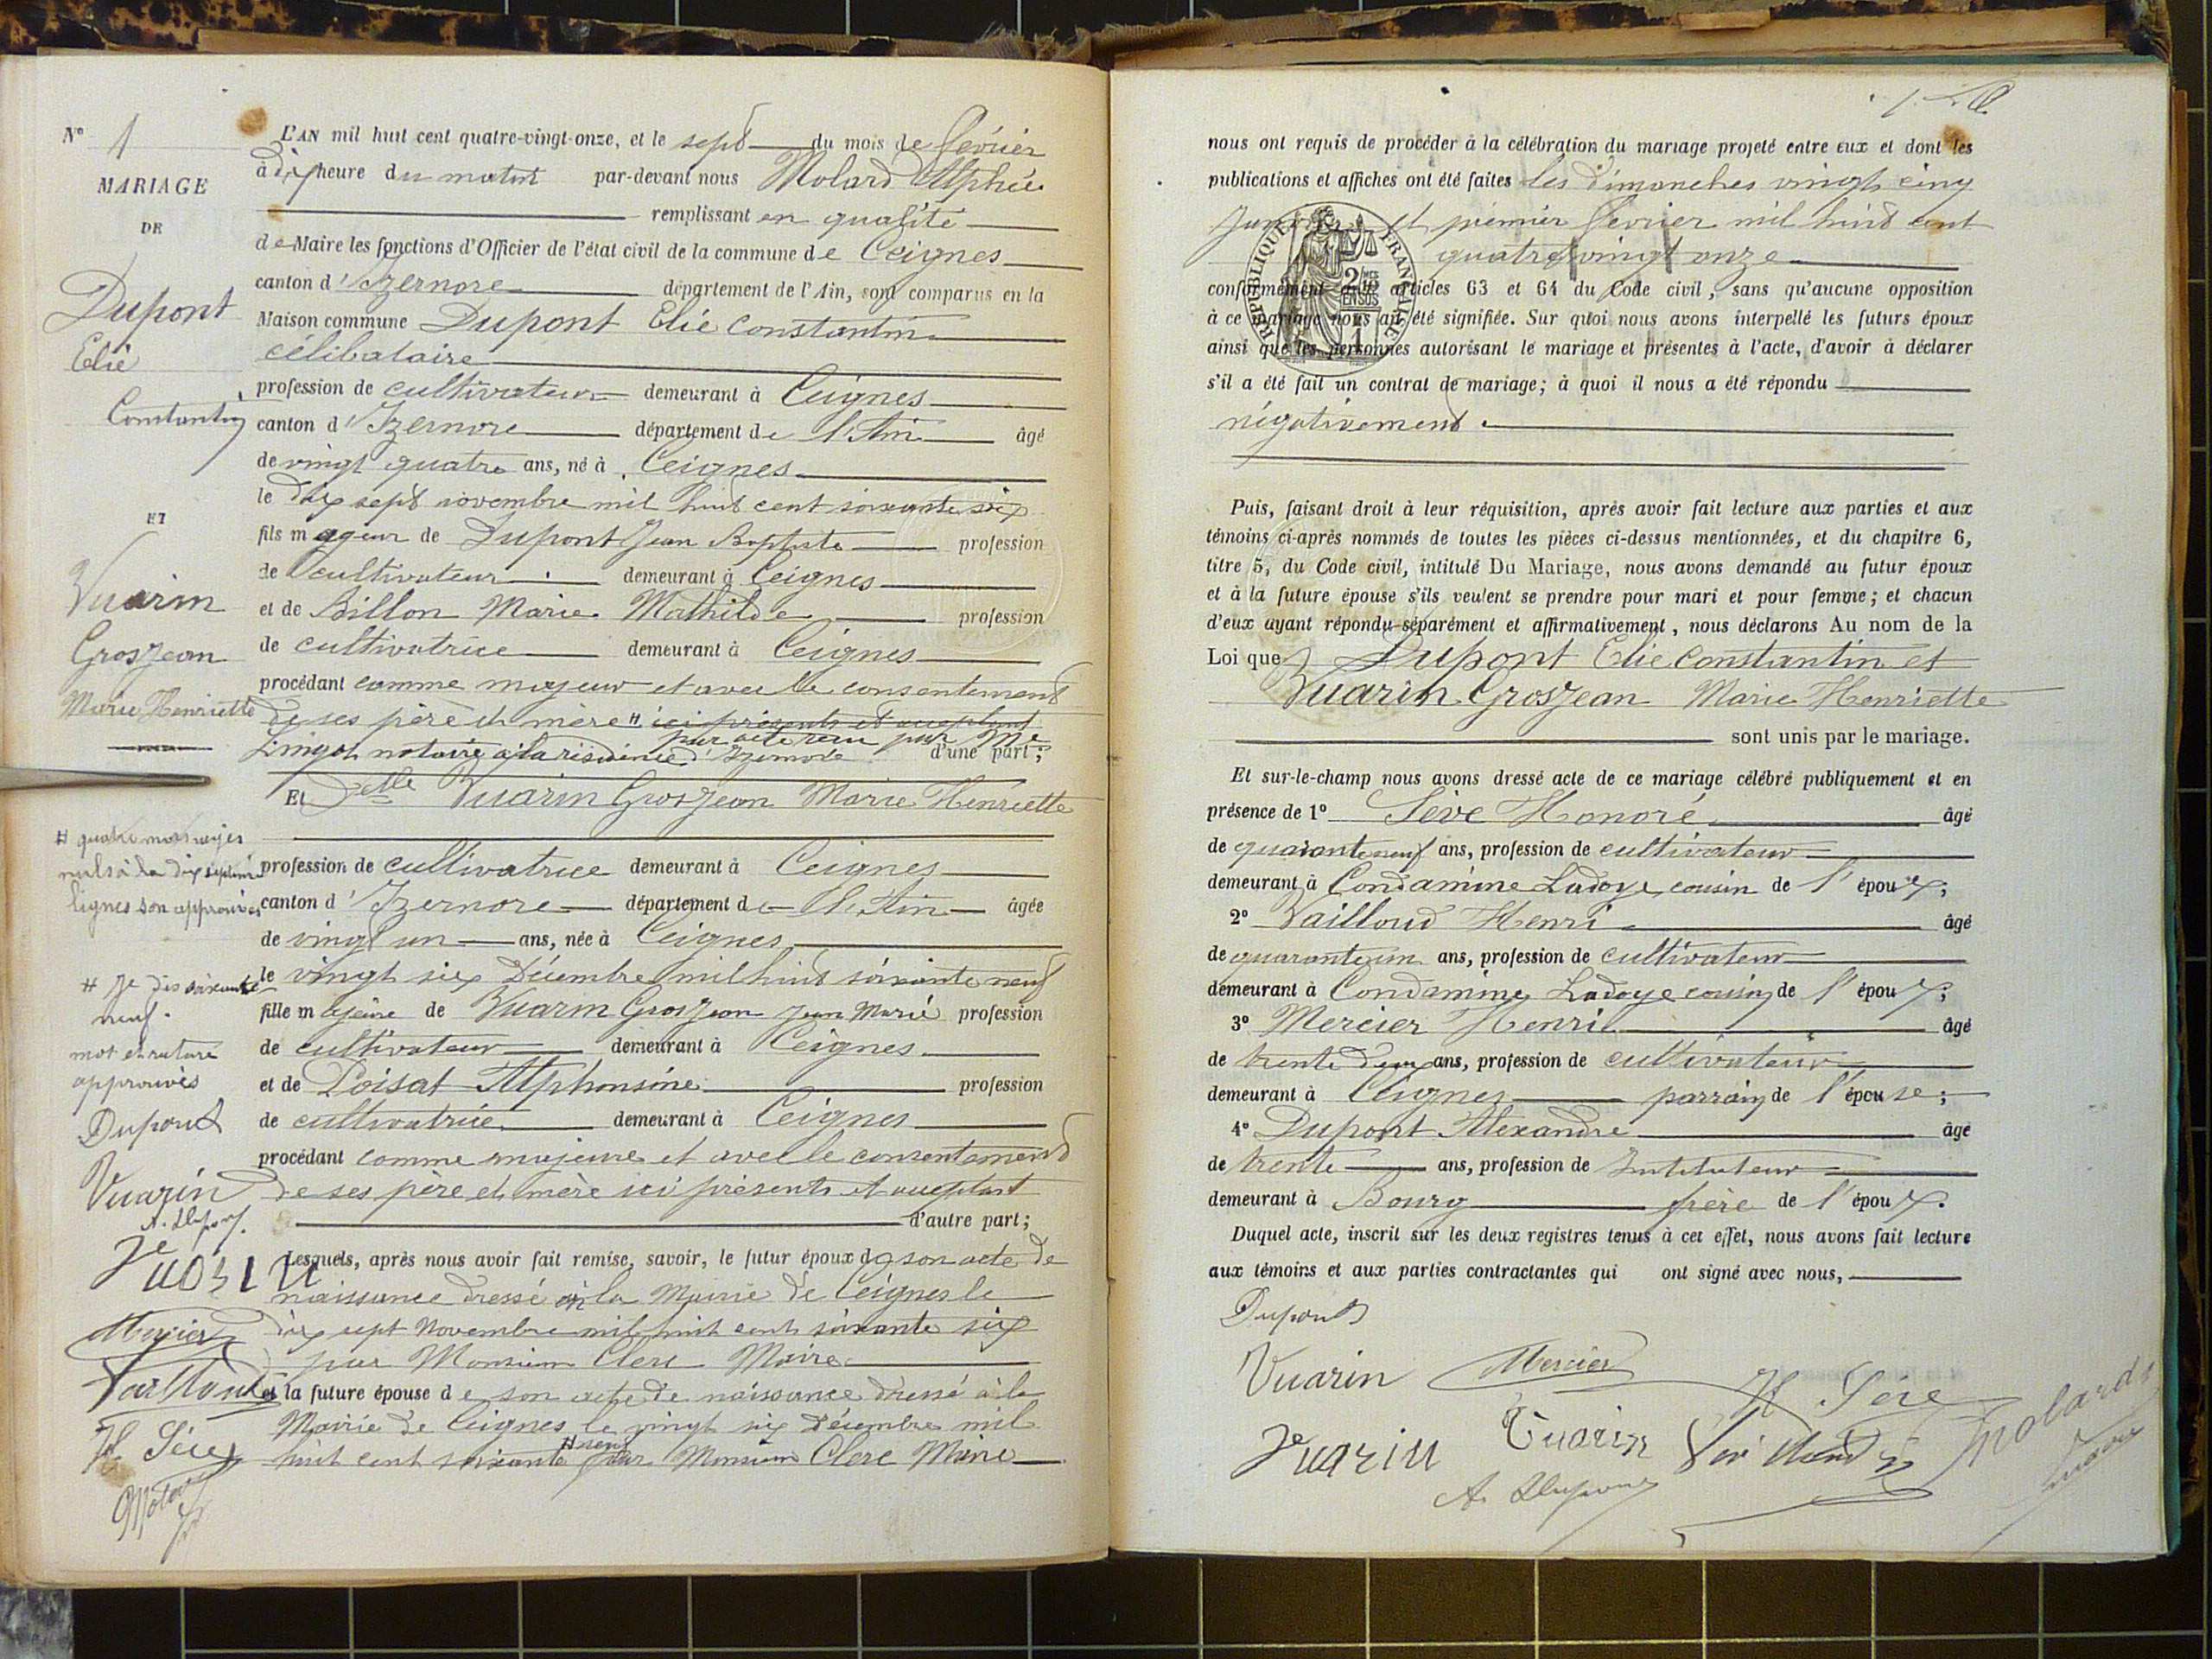 N° 1
MARIAGE
DE
Dupont
Elie
Constantin
ET
Vuarin
Grosjean
Marie Henriette
# quatre mots rayés
nuls à la dix septième
lignes son approuvés
# Je dis soixante
neuf.
mot et rature
approuvés
Dupont
Vuarin
A. Dupont
Vuarin
Mercier
Vailloud
H. Sève
Molard
L'AN mil huit cent quatre-vingt-onze, et le sept du mois de février
à dix heure du matin par-devant nous Molard Alphée
remplissant en qualité
de Maire les fonctions d'Officier de l'état civil de la commune de Ceignes
canton d'Izernore département de l'Ain, sont comparus en la
Maison commune Dupont Elie Constantin
célibataire
profession de cultivateur demeurant à Ceignes
canton d'Izernore département de l'Ain âgé
de vingt quatre ans, né à Ceignes
le dix sept novembre mil huit cent soixante six
fils mageur de Dupont Jean Baptiste profession
de cultivateur demeurant à Ceignes
et de Billon Marie Mathilde profession
de cultivatrice demeurant à Ceignes
procédant comme majeur et avec le consentement
de ses père et mère # ici présents et acceptant
par acte reçu par Me
notaire à la résidence d'Izernore d'une part;
Et Delle Vuarin Grosjean Marie Henriette
profession de cultivatrice demeurant à Ceignes
canton d'Izernore département de l'Ain âgée
de vingt un ans, née à Ceignes
le vingt six Décembre mil huit soixante neuf
fille majeure de Vuarin Grosjean Jean Marie profession
de cultivateur demeurant à Ceignes
et de Poisat Alphonsine profession
de cultivatrice demeurant à Ceignes
procédant comme majeure et avec le consentement
de ses père et mère ici présents et acceptant
d'autre part;
Lesquels, après nous avoir fait remise, savoir, le futur époux de son acte de
naissance dressé à la Mairie de Ceignes le
dix sept Novembre mil huit cent soixante six
par Monsieur Clerc Maire
et la future épouse de son acte de naissance dressé à la
Mairie de Ceignes le vingt six Décembre mil
huit cent soixante # neuf par Monsieur Clerc Maire
nous ont requis de procéder à la célébration du mariage projeté entre eux et dont les
publications et affiches ont été faites les dimanches vingt cinq
Janvier et premier février mil huit cent
quatre vingt onze
conformément aux articles 63 et 64 du Code civil, sans qu'aucune opposition
à ce mariage nous ait été signifiée. Sur quoi nous avons interpellé les futurs époux
ainsi que les personnes autorisant le mariage et présentes à l'acte, d'avoir à déclarer
s'il a été fait un contrat de mariage; à quoi il nous a été répondu
négativement.
RÉPUBLIQUE FRANÇAISE
Puis, faisant droit à leur réquisition, après avoir fait lecture aux parties et aux
témoins ci-après nommés de toutes les pièces ci-dessus mentionnées, et du chapitre 6,
titre 5, du Code civil, intitulé Du Mariage, nous avons demandé au futur époux
et à la future épouse s'ils veulent se prendre pour mari et pour femme; et chacun
d'eux ayant répondu séparément et affirmativement, nous déclarons Au nom de la
Loi que Dupont Elie Constantin et
Vuarin Grosjean Marie Henriette
sont unis par le mariage.
Et sur-le-champ nous avons dressé acte de ce mariage célébré publiquement et en
présence de 1° Sève Honoré âgé
de quarante neuf ans, profession de cultivateur
demeurant à Condamine Ladoye, cousin de l'époux;
2° Vailloud Henri âgé
de quarante un ans, profession de cultivateur
demeurant à Condamine Ladoye cousin de l'époux;
3° Mercier Henri âgé
de trente deux ans, profession de cultivateur
demeurant à Ceignes parrain de l'épouse;
4° Dupont Alexandre âgé
de trente ans, profession de Instituteur
demeurant à Bourg frère de l'époux.
Duquel acte, inscrit sur les deux registres tenus à cet effet, nous avons fait lecture
aux témoins et aux parties contractantes qui ont signé avec nous,
Dupont
Vuarin Mercier H Sève
Vuarin Vuarin Vailloud Molard
A. Dupont